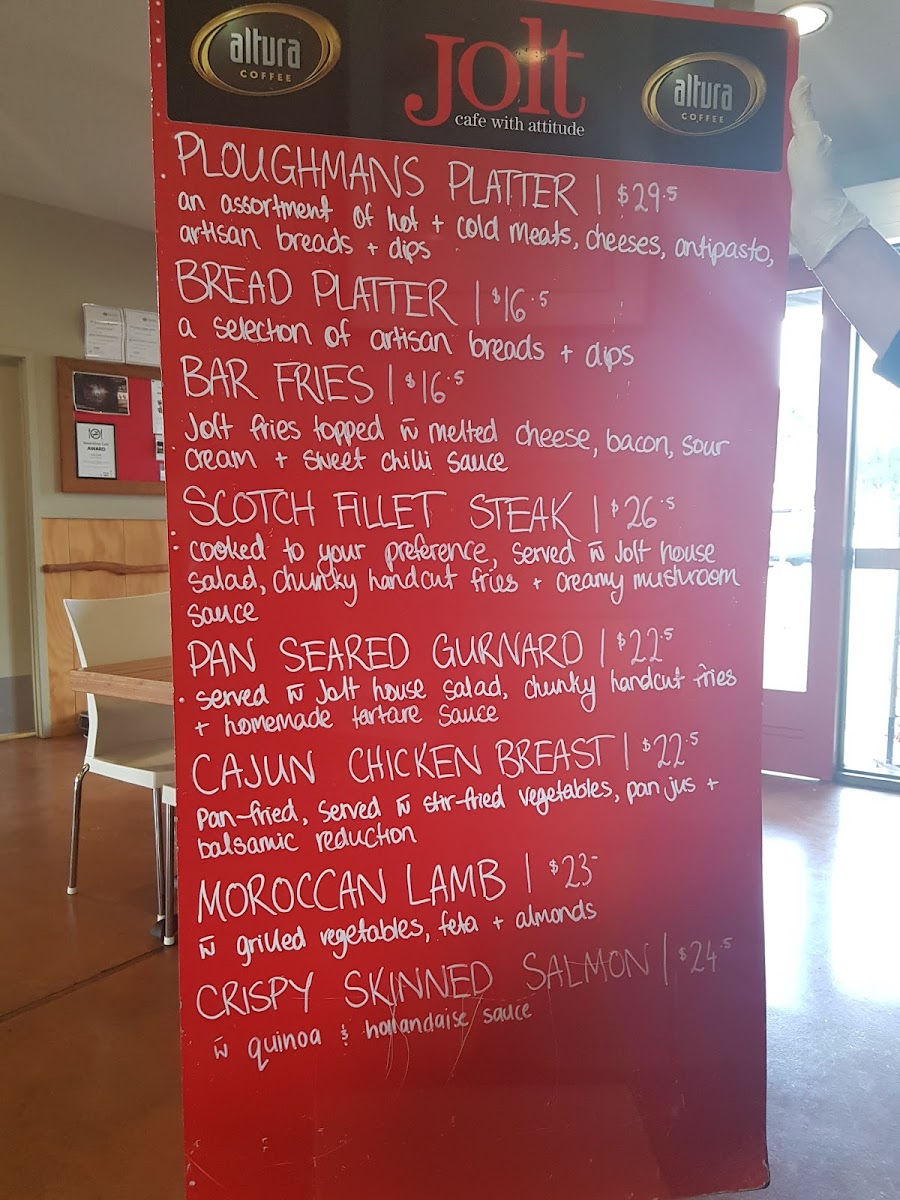 altura
COFFEE
Jolt
cafe with attitude
altura
COFFEE
PLOUGHMANS PLATTER | $29.5
an assortment of hot + cold meats, cheeses, antipasto,
artisan breads + dips
BREAD PLATTER | $16.5
a selection of artisan breads + dips
BAR FRIES | $16.5
Jolt fries topped w̄ melted cheese, bacon, sour
cream + sweet chilli sauce
SCOTCH FILLET STEAK | $26.5
cooked to your preference, served w̄ Jolt house
salad, chunky handcut fries + creamy mushroom
sauce
PAN SEARED GURNARD | $22.5
served w̄ Jolt house salad, chunky handcut fries
+ homemade tartare sauce
CAJUN CHICKEN BREAST | $22.5
pan-fried, served w̄ stir-fried vegetables, pan jus +
balsamic reduction
MOROCCAN LAMB | $23-
w̄ grilled vegetables, feta + almonds
CRISPY SKINNED SALMON | $24.5
w̄ quinoa & hollandaise sauce
AWARD